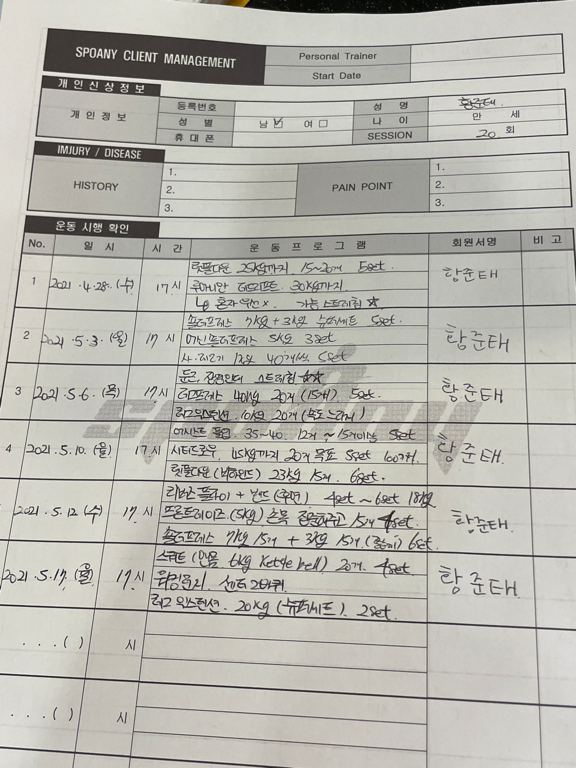 SPOANY CLIENT MANAGEMENT
Personal Trainer
Start Date
개인신상정보
개 인 정 보
등록번호
성 명 황준태.
성 별 남 여
나 이 만 세
휴 대 폰
SESSION 20 회
IMJURY / DISEASE
HISTORY
1.
2.
3.
PAIN POINT
1.
2.
3.
운동 시행 확인
No. 일 시 시 간 운 동 프 로 그 램 회원서명 비 고
1 2021. 4.28. (수) 17시 황준태
랫풀다운 25kg까지 15~20개 5set.
루마니안 데드리프트. 30kg까지
가능 스트레칭 ☆
2 2021. 5. 3. (월) 17시 황준태
숄더프레스 7kg + 3kg 5set.
머신숄더프레스 5kg 3set
5set
3 2021. 5. 6. (목) 17시 황준태
스트레칭 ☆☆
레그프레스 40kg 20개 (15개) 5set.
레그익스텐션. 10kg 20개 (속도 느리게)
4 2021. 5.10. (월) 17시 황준태.
어시스트 풀업. 35~40. 12개 ~ 15개이상 5set
시티드로우. 45kg까지 20개 목표 5set 100개.
랫풀다운 (비하인드) 23kg 15개. 6set.
2021. 5.12. (수) 17. 시 황준태.
리버스 플라이 + 밴드 (후면) 4set ~ 6set 18kg
프론트레이즈 (5kg) 손목 15개 4set.
숄더프레스 7kg 15개 + 3kg 15개. 6set.
2021. 5. 17. (월) 17. 시 황준태.
스쿼트 (맨몸 6kg Kettle bell) 20개. 4set
센터 2바퀴.
레그 익스텐션. 20kg (뉴트러세트). 2set.
. . . ( ) 시
. . . ( ) 시
spoany